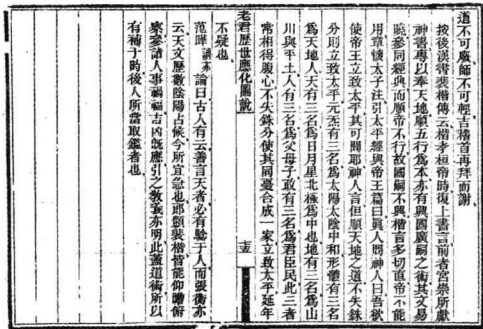 道不可廢師不可輕吉稽首再拜而謝
按後漢書襄楷傳云楷孝桓帝時復上書言前者宮崇所獻
神書專以奉天地順五行爲本亦有興國廣嗣之術其文易
曉參同經典而順帝不行故國嗣不興楷言多切直帝不能
用章懷太子注引太平經興帝王篇曰眞人問神人曰吾欲
使帝王立致太平其可聞耶神人言但順天地之道不失銖
分則立致太平元炁有三名爲太陽太陰中和形體有三名
爲天地人天有三名爲日月星北極爲中也地有三名爲山
川與平土人有三名爲父母子政有三名爲君臣民此三者
常相得腹心不失銖分使其同憂合成一家立致太平延年
老君歷世應化圖說
不疑也
范曄論曰古人有云善言天者必有驗于人而張衡亦
云天文歷數陰陽占候今所宜急也郎顗襄楷皆能仰瞻俯
察參諸人事禍福吉凶旣應引之敎義亦明此蓋道術所以
有補于時後人所當取鑑者也